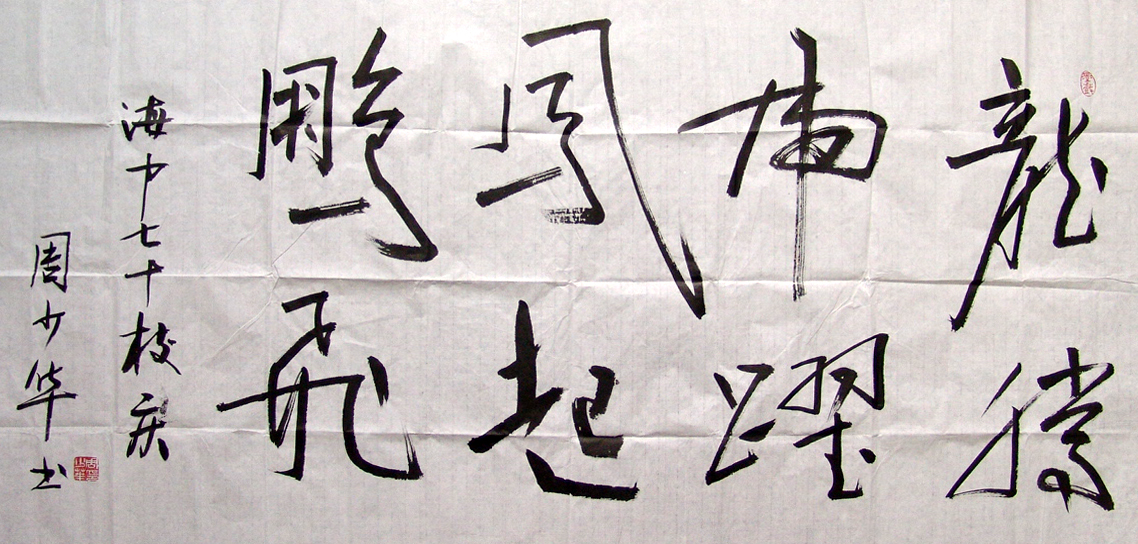 龍騰
虎躍
鳳起
鵬飛
海中七十校庆
周少华书